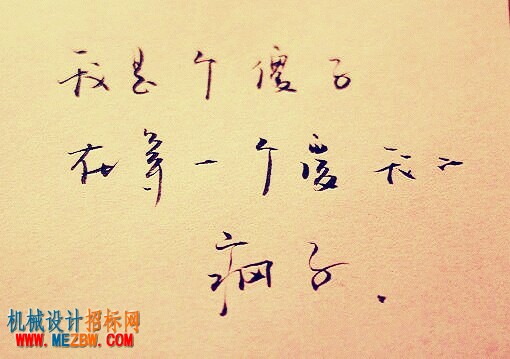 我是个傻子
在等一个爱我的
疯子.
机械设计招标网
www.MEZBW.com